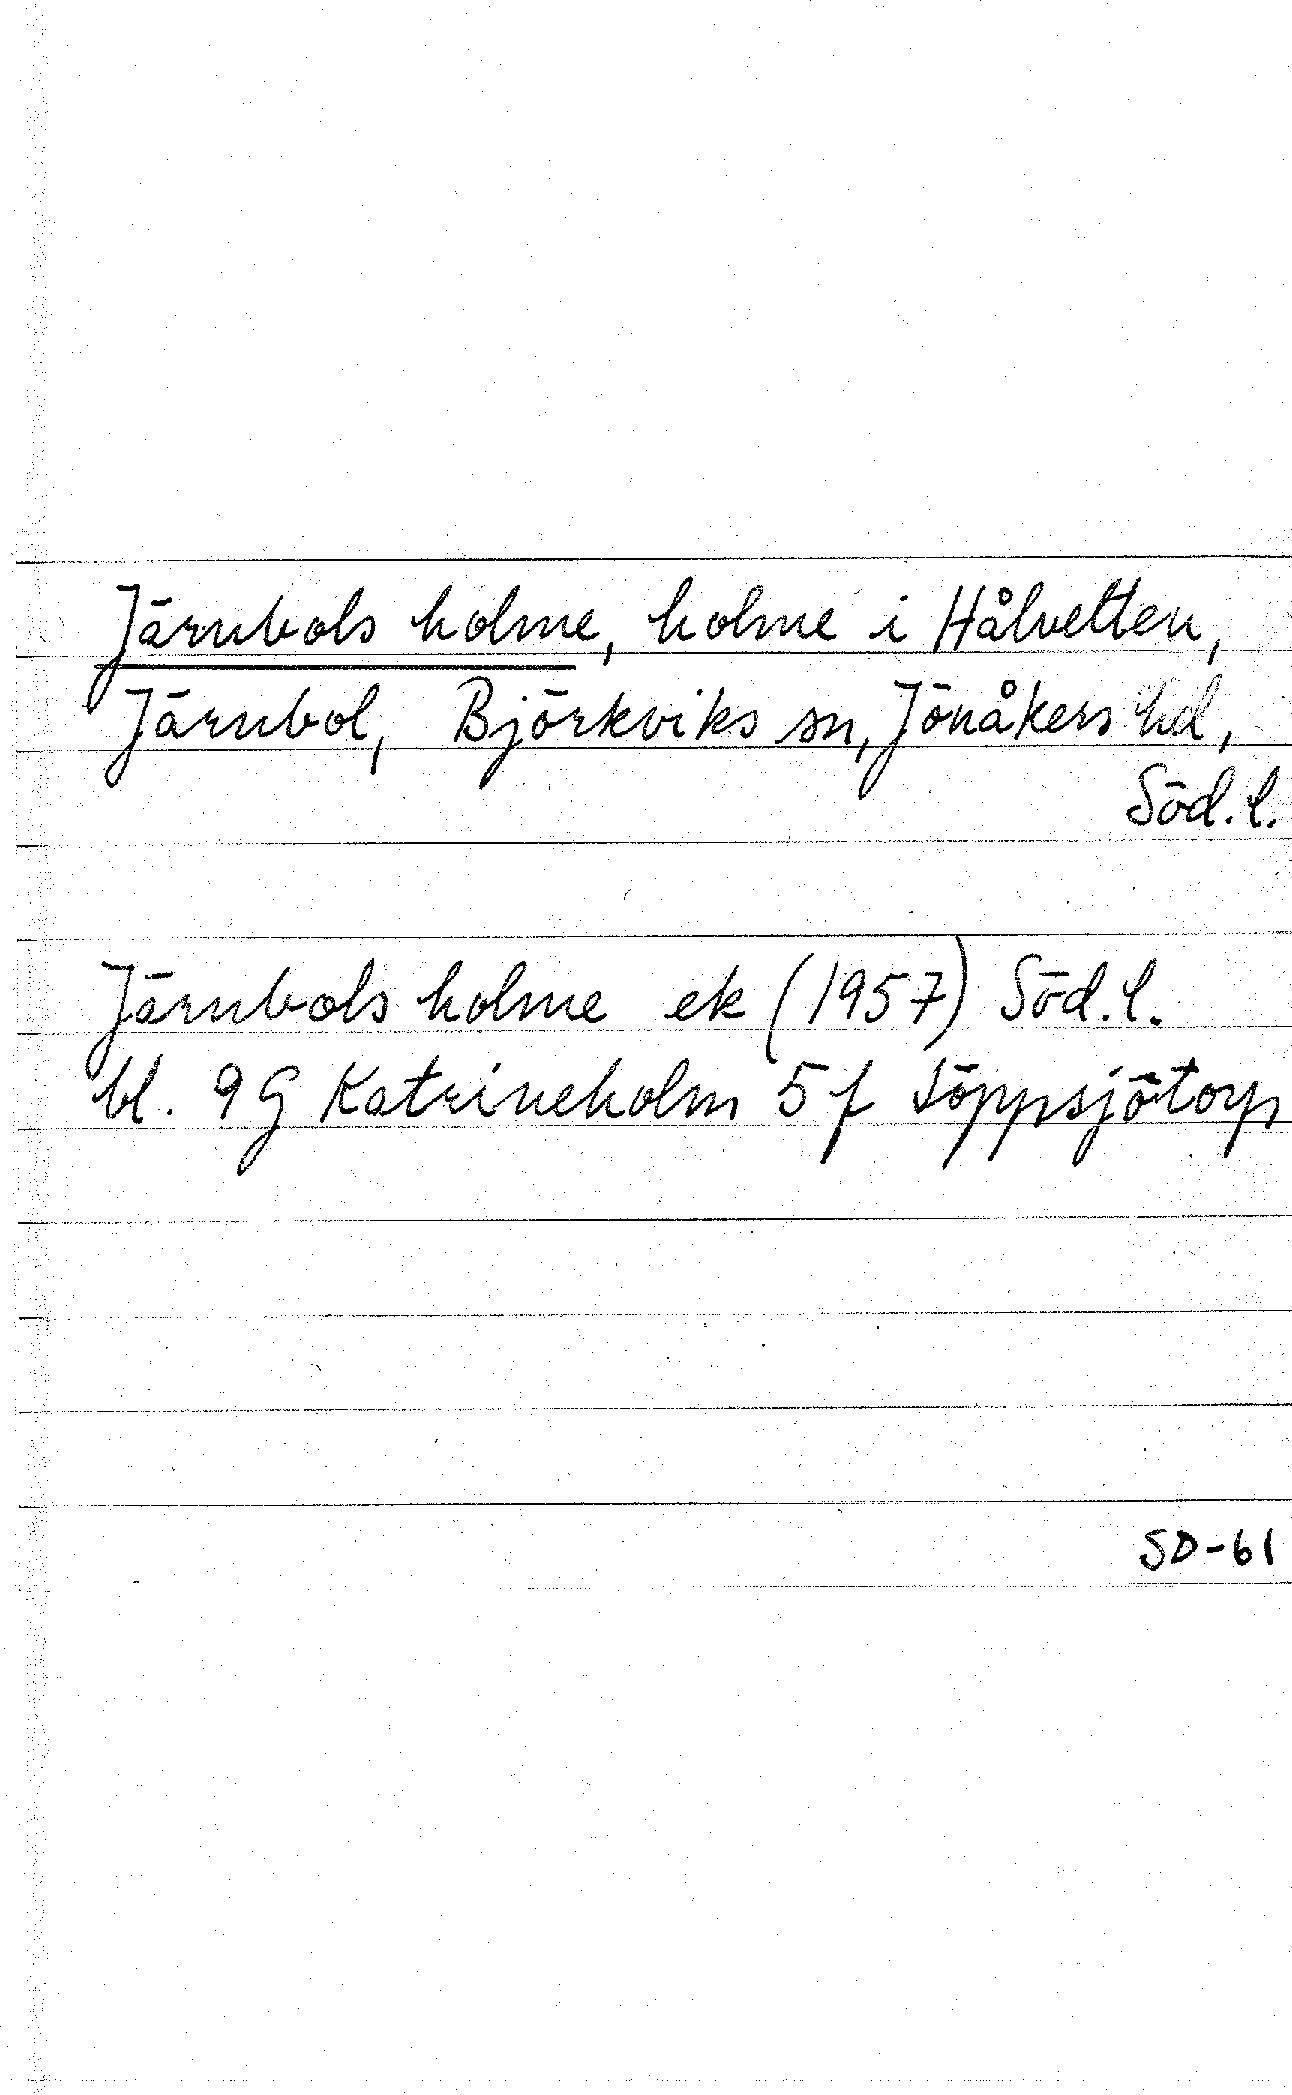 Järnbols holme, holme i Hålvetten,
Järnbol, Björkviks sn, Jönåkers hd,
Söd. l.
Järnbols holme ek (1957) Söd. l.
bl. 9G Katrineholm 5f Löppsjötorp
SD-61